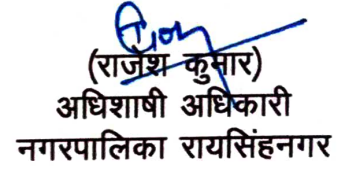 (राजेश कुमार)
अधिशाषी अधिकारी
नगरपालिका रायसिंहनगर